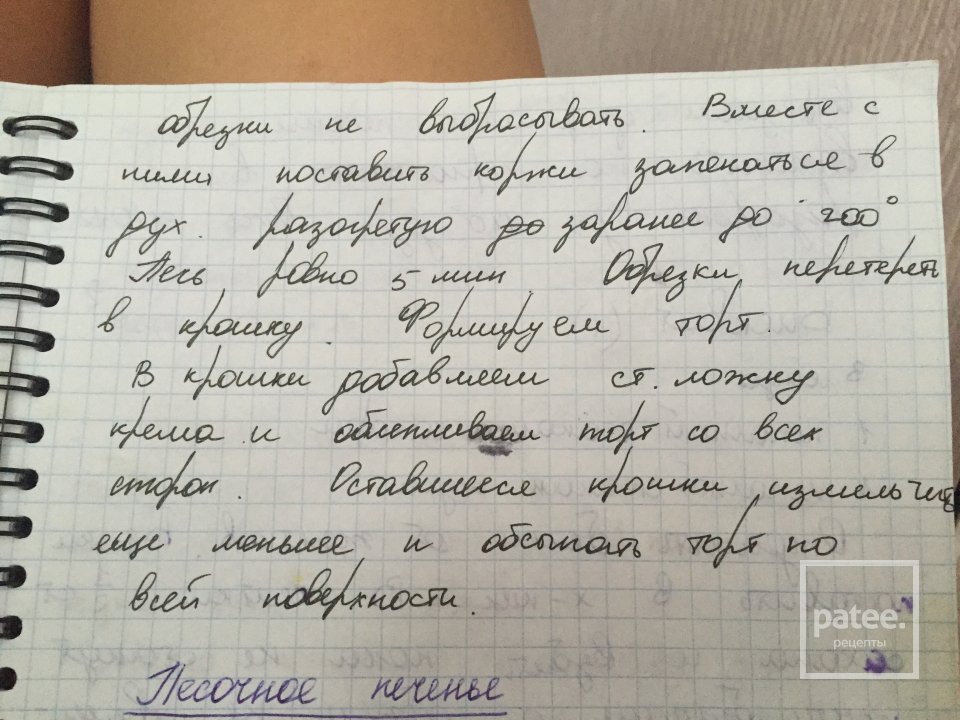 обрезки не выбрасывать. Вместе с
ними поставить коржи запекаться в
дух. разогретую до заранее до 200°
Печь ровно 5 мин. Обрезки перетереть
в крошку. Формируем торт.
В крошки добавляем ст. ложку
крема и облепливаем торт со всех
сторон. Оставшиеся крошки измельчить
еще меньше и обсыпать торт по
всей поверхности.
Песочное печенье
patee.
рецепты